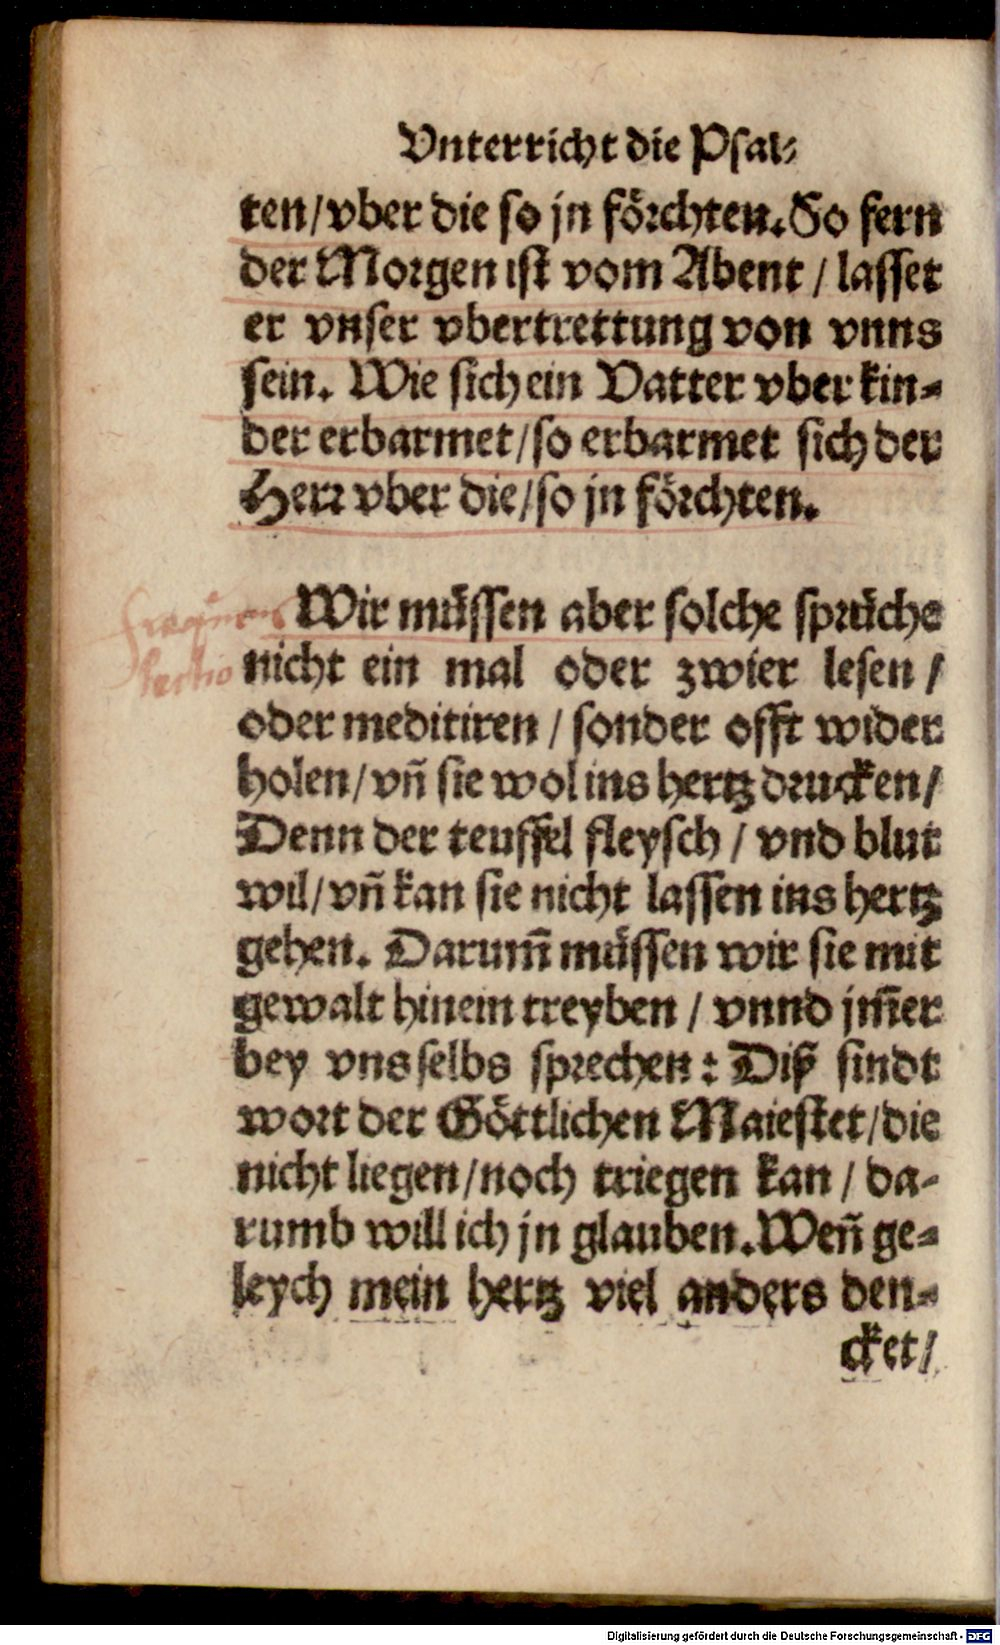 Vnterricht die Psal⸗
ten/vber die so jn förchten. So fern
der Morgen ist vom Abent / lasset
er vnser vbertrettung von vnns
sein. Wie sich ein Vatter vber kin⸗
der erbarmet/so erbarmet sich der
Herr vber die/so jn förchten.
Wir müssen aber solche sprüche
nicht ein mal oder zwier lesen /
oder meditiren / sonder offt wider
holen/vñ sie wol ins hertz drucken/
Denn der teuffel fleysch / vnd blut
wil/vñ kan sie nicht lassen ins hertz
gehen. Darum̃ müssen wir sie mit
gewalt hinein treyben / vnnd jm̃er
bey vns selbs sprechen: Diß sindt
wort der Göttlichen Maiestet/die
nicht liegen/noch triegen kan / da⸗
rumb will ich jn glauben. Weñ ge⸗
leych mein hertz viel anders den⸗
cket/
frequens
lectio
Digitalisierung gefördert durch die Deutsche Forschungsgemeinschaft - DFG